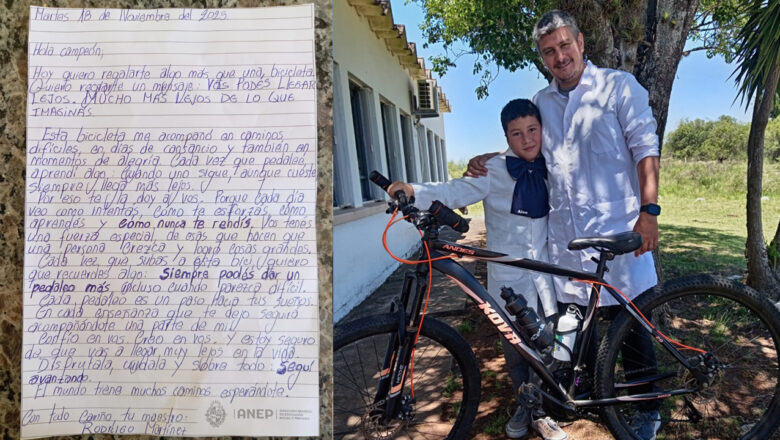 Martes 18 de Noviembre del 2025.
Hola campeón,
Hoy quiero regalarte algo más que una bicicleta.
Quiero regalarte un mensaje: VOS PODÉS LLEGAR
LEJOS. MUCHO MÁS LEJOS DE LO QUE
IMAGINAS.
Esta bicicleta me acompañó en caminos
difíciles, en días de cansancio y también en
momentos de alegría. Cada vez que pedaleé,
aprendí algo: cuando uno sigue, aunque cueste
siempre llega más lejos.
Por eso te la doy a vos. Porque cada día
veo como intentás, como te esforzás, como
aprendés y como nunca te rendís. Vos tenés
una fuerza especial, de esas que hacen que
una persona crezca y logre cosas grandes.
Cada vez que subas a esta bici, quiero
que recuerdes algo: Siempre podás dar un
pedaleo más, incluso cuando parezca difícil.
Cada pedaleo es un paso hacia tus sueños.
En cada enseñanza que te dejo seguirá
acompañándote una parte de mi.
Confío en vos. Creo en vos. Y estoy seguro
de que vas a llegar muy lejos en la vida.
Disfrutala, cuidala y sobre todo: Seguí
avanzando.
El mundo tiene muchos caminos esperándote.
Con todo cariño, tu maestro:
Rodrigo Martínez
ANEP
ANDES
XOYA